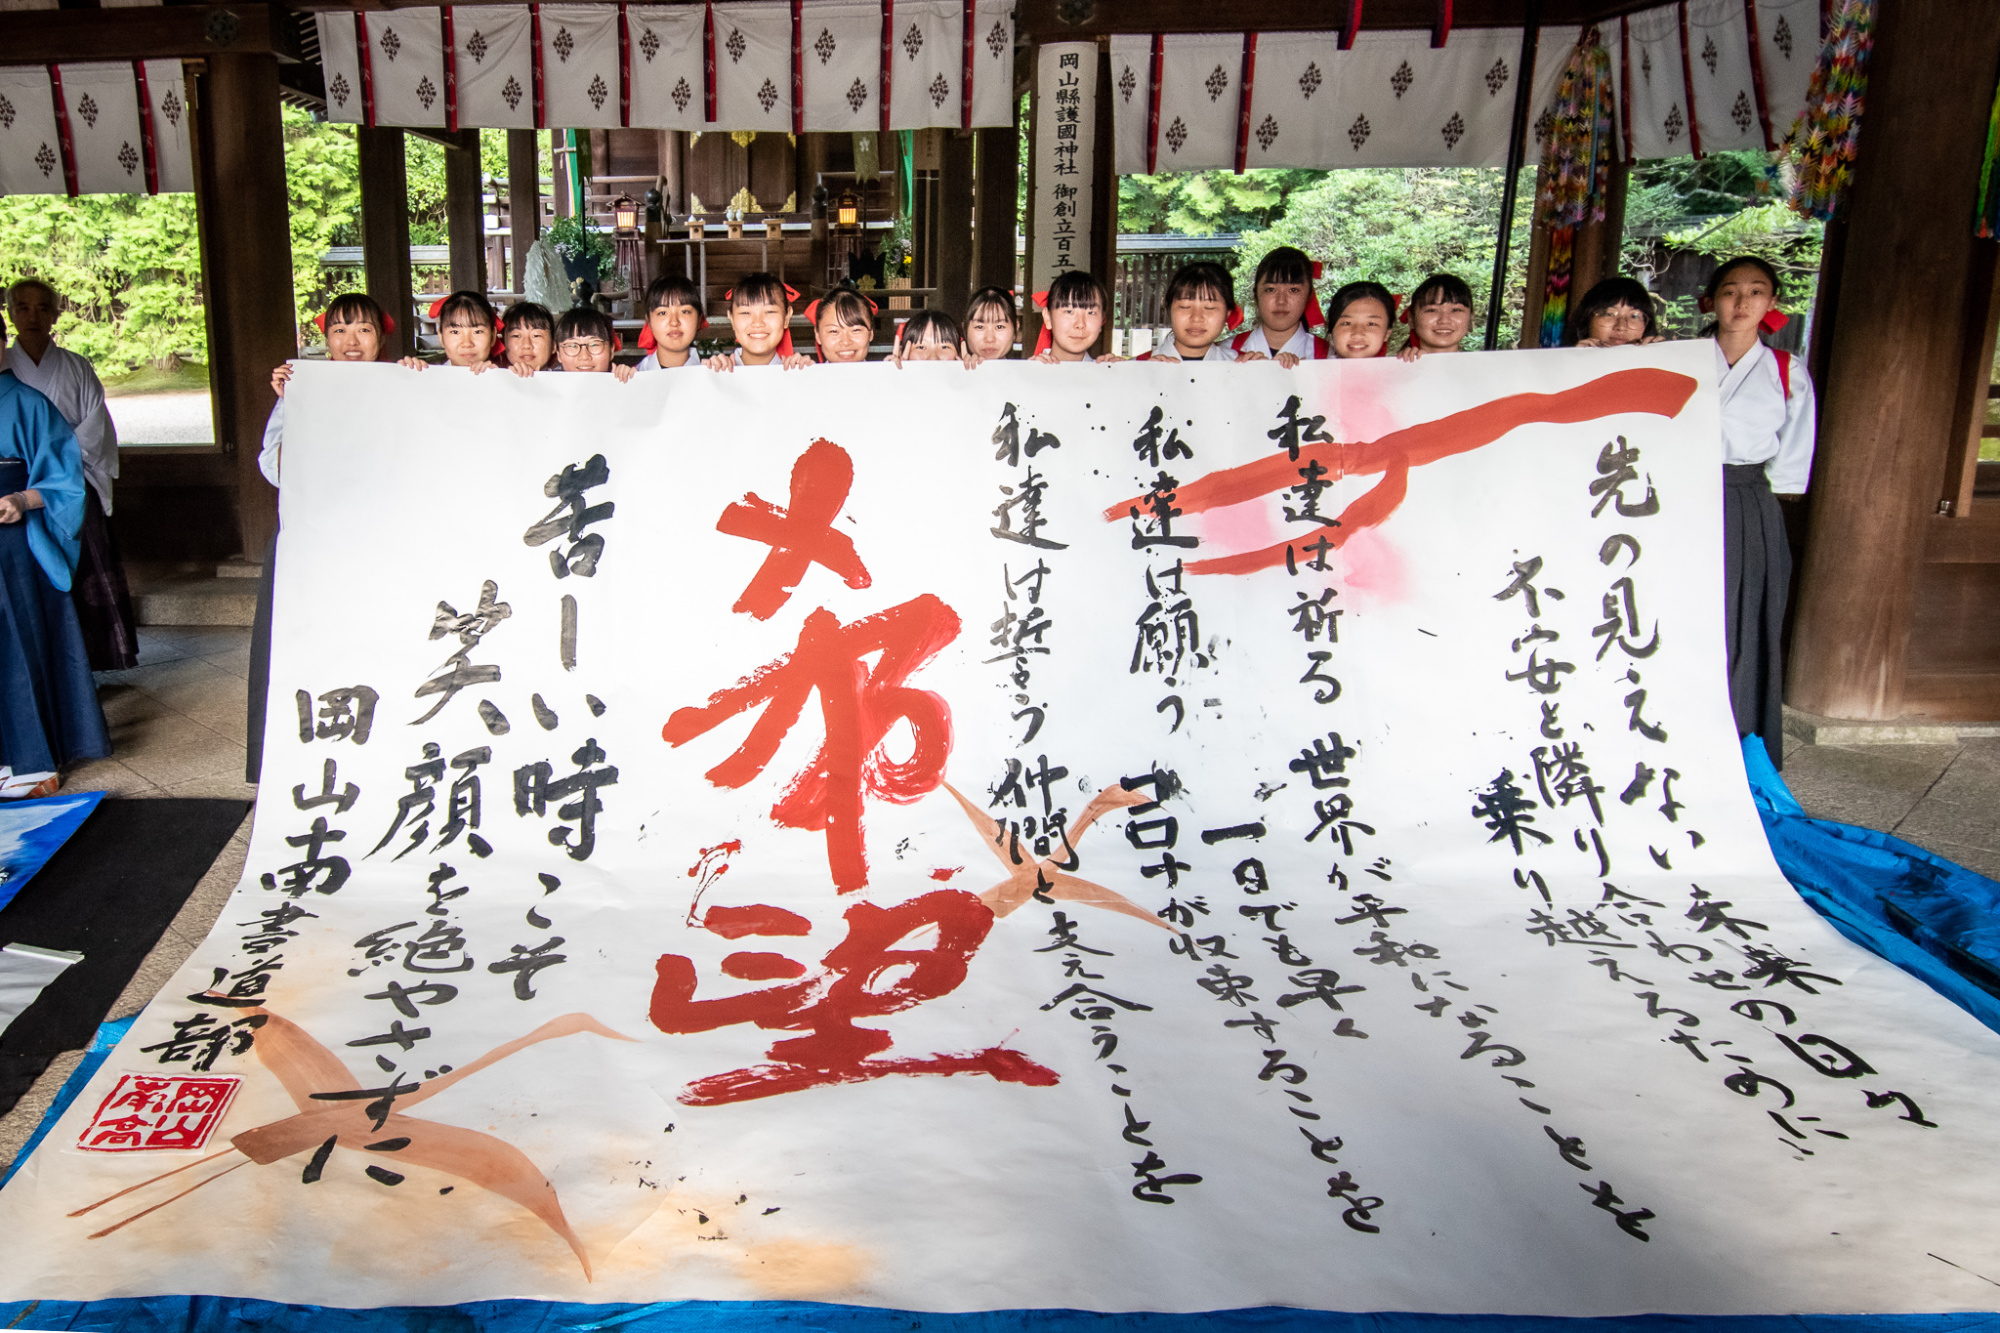 岡山縣護國神社 御創立百五十
先の見えない未来
不安と隣り合わせの日々
乗り越えるために
私達は祈る 世界が平和になることを
私達は願う 一日でも早く
コロナが収束することを
私達は誓う 仲間と支え合うことを
希望
苦しい時こそ
笑顔を絶やさずに
岡山南書道部
岡山南高